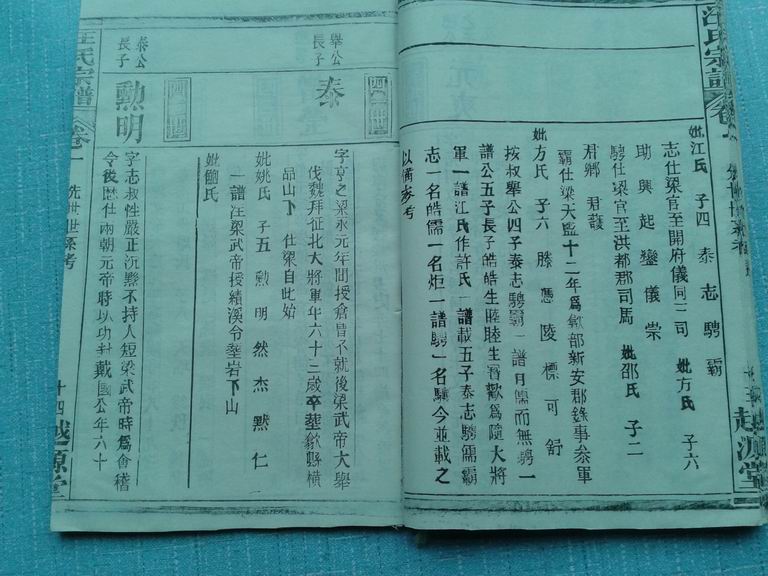 汪氏宗譜 卷一
越源堂
妣江氏 子四 泰 志 騁 霸
志仕梁官至開府儀同三司 妣方氏 子六
助 興 起 鑾 儀 崇
騁仕梁官至洪都郡司馬 妣邵氏 子二
君鄉 君護
霸仕梁天監十二年為歙部新安郡錄事參軍
妣方氏 子六 勝 憑 陵 標 可 舒
按叔舉公四子泰志騁霸一譜有儒而無騁一
譜公五子長子皓皓生睦睦生晉歡為隨大將
軍一譜江氏作許氏一譜載五子泰志騁儒霸
志一名皓儒一名炬一譜騁一名驤今並載之
以備參考
舉公長子
泰
字亨之梁永元年間授倉曹不就後梁武帝大舉
伐魏拜征北大將軍年六十三歲卒塟歙縣橫
品山下 仕梁自此始
妣姚氏 子五 勲 明 然 杰 黙 仁
一譜注梁武帝授績溪令塟岩下山
妣鮑氏
泰公長子
勲明
字志叔性嚴正沉黙不持人短梁武帝時為會稽
令後歷仕兩朝元帝時以功封戴國公年六十
汪氏宗譜 卷一 先世世系考 十四 越源堂